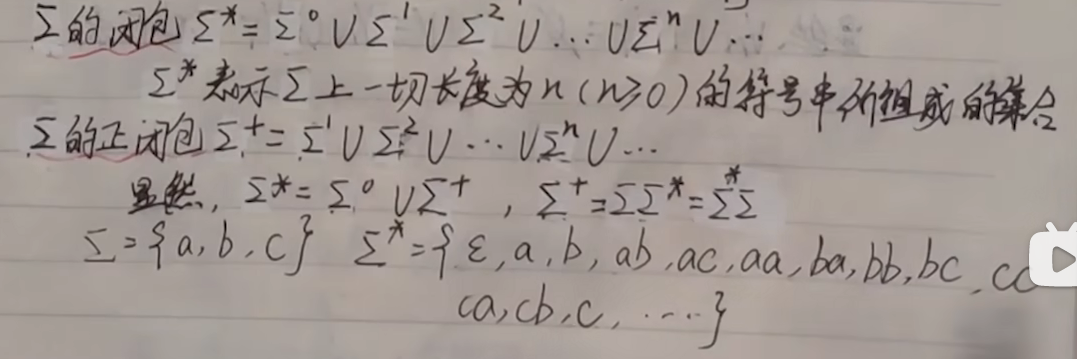 Σ的闭包 Σ* = Σ⁰ ∪ Σ¹ ∪ Σ² ∪ … ∪ Σⁿ ∪ …
Σ* 表示 Σ 上一切长度为 n (n≥0) 的符号串所组成的集合
Σ的正闭包 Σ⁺ = Σ¹ ∪ Σ² ∪ … ∪ Σⁿ ∪ …
显然, Σ* = Σ⁰ ∪ Σ⁺ , Σ⁺ = ΣΣ* = Σ*Σ
Σ = {a, b, c} Σ* = {ε, a, b, ab, ac, aa, ba, bb, bc, cc
ca, cb, c, ....}